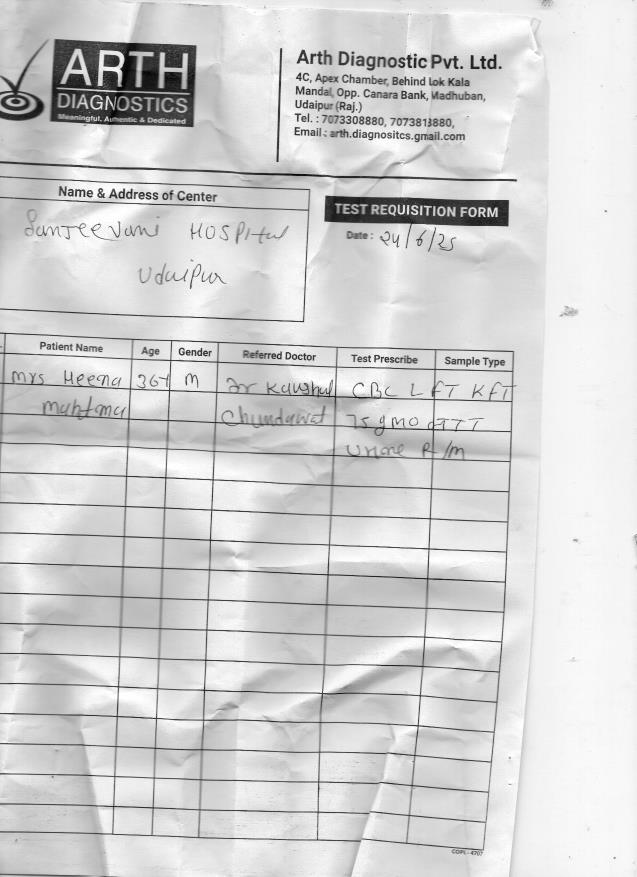 ARTH
DIAGNOSTICS
Meaningful, Authentic & Dedicated
Arth Diagnostic Pvt. Ltd.
4C, Apex Chamber, Behind Lok Kala
Mandal, Opp. Canara Bank, Madhuban,
Udaipur (Raj.)
Tel. : 7073308880, 7073813880,
Email : arth.diagnositcs.gmail.com
Name & Address of Center
TEST REQUISITION FORM
Sanjeevani HOSPital
Udaipur
Date : 24/6/25
Patient Name Age Gender Referred Doctor Test Prescribe Sample Type
Mrs Heena 36Y M Dr Kaushal CBC LFT KFT
Chundawat 75 gm
Urine R/M
COPL - 4707